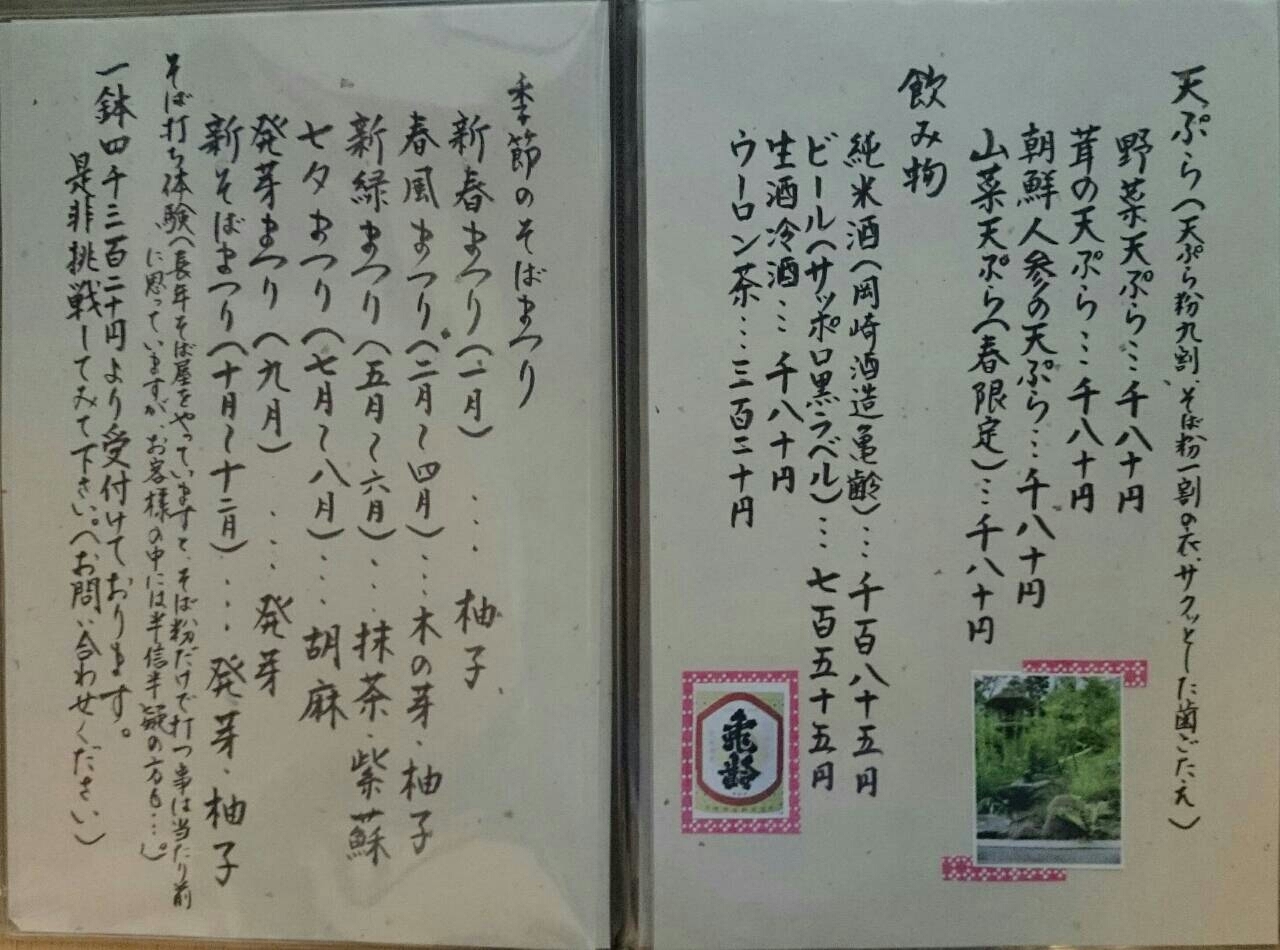 天ぷら(天ぷら粉九割、そば粉一割の衣、サクッとした歯ごたえ)
野菜天ぷら…千八十円
茸の天ぷら…千八十円
朝鮮人参の天ぷら…千八十円
山菜天ぷら(春限定)…千八十円
飲み物
純米酒(岡崎酒造亀齢)…千百八十五円
ビール(サッポロ黒ラベル)…七百五十五円
生酒冷酒…千八十円
ウーロン茶…三百二十円
亀齢
季節のそばまつり
新春まつり(一月)…柚子
春風まつり(二月〜四月)…木の芽・柚子
新緑まつり(五月〜六月)…抹茶・紫蘇
七夕まつり(七月〜八月)…胡麻
発芽まつり(九月)…発芽
新そばまつり(十月〜十二月)…発芽・柚子
そば打ち体験(長年そば屋をやっていますと、そば粉だけで打つ事は当たり前
に思っていますが、お客様の中には半信半疑の方も…。)
一鉢四千三百二十円より受付けております。
是非挑戦してみて下さい。(お問い合わせください)